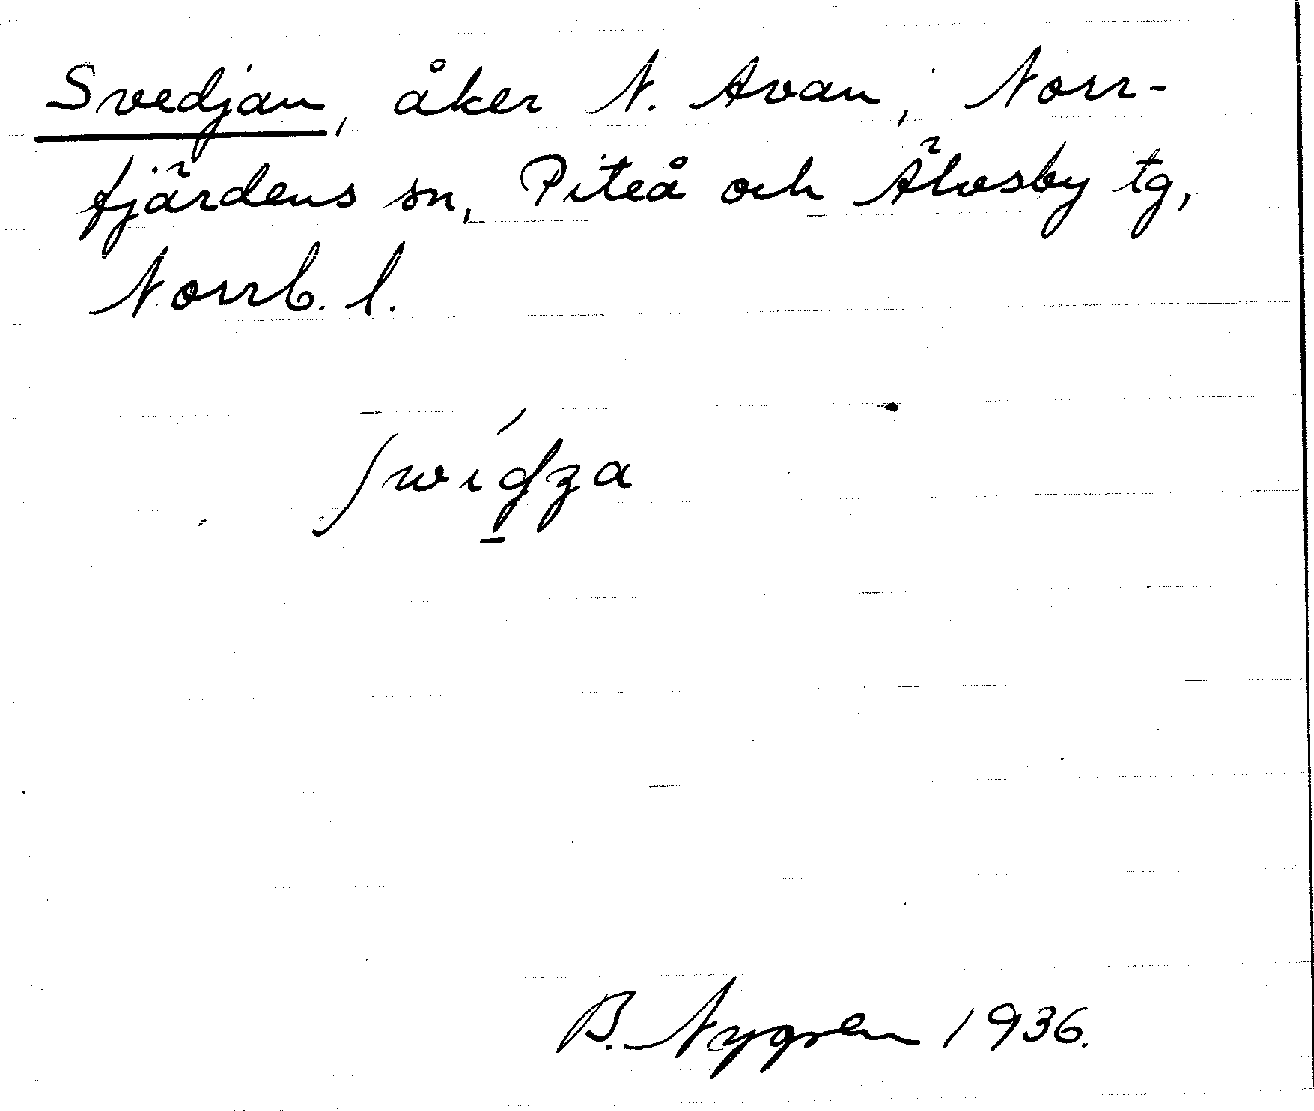 Svedjan, åker N. Avan, Norr-
fjärdens sn, Piteå och Älvsby tg,
Norrb. l.
B. Nygren 1936.